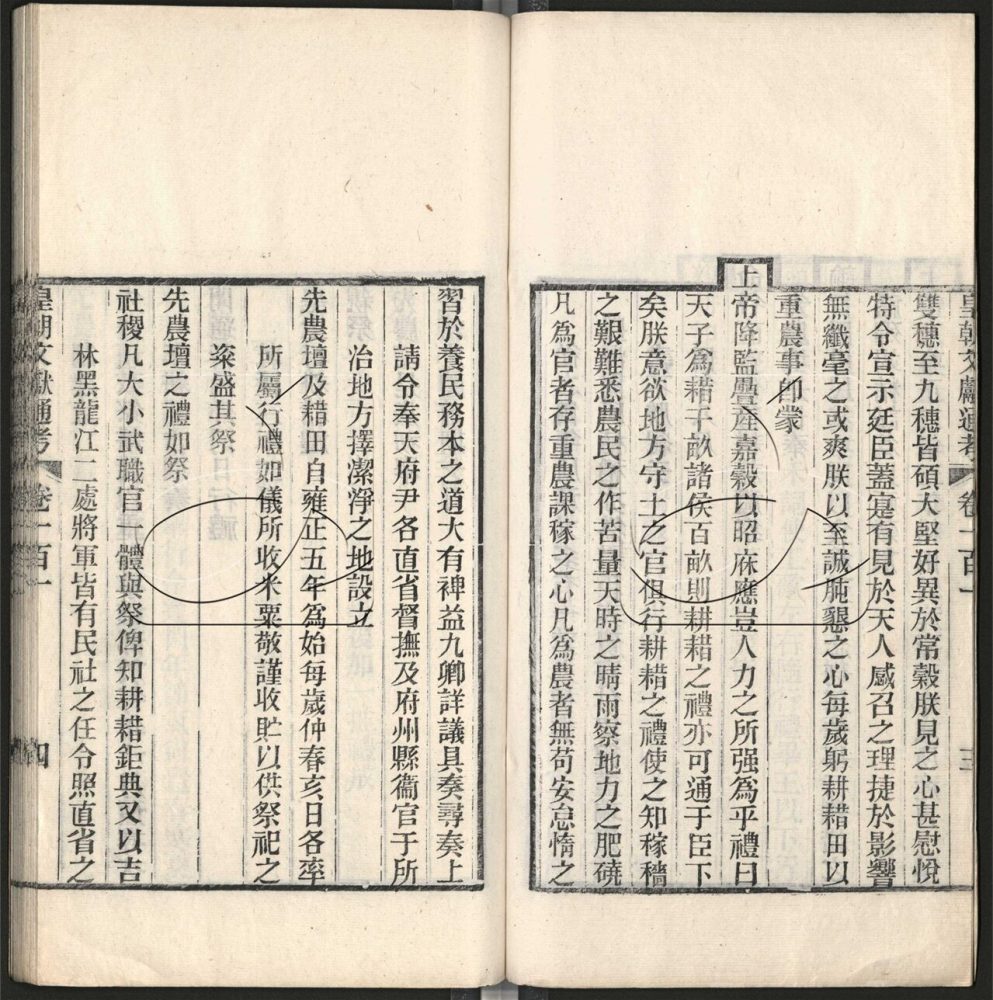 皇朝文獻通考 卷一百一 三
雙穗至九穗皆碩大堅好異於常穀朕見之心甚慰悅
特令宣示廷臣蓋寔有見於天人感召之理捷於影響
無纖毫之或爽朕以至誠肫懇之心每歲躬耕耤田以
重農事卽蒙
上帝降監疊產嘉穀以昭庥應豈人力之所强爲乎禮曰
天子爲耤千畝諸侯百畝則耕耤之禮亦可通于臣下
矣朕意欲地方守土之官俱行耕耤之禮使之知稼穡
之艱難悉農民之作苦量天時之晴雨察地力之肥磽
凡爲官者存重農課稼之心凡爲農者無苟安怠惰之
習於養民務本之道大有裨益九卿詳議具奏尋奏上
請令奉天府尹各直省督撫及府州縣衞官于所
治地方擇潔淨之地設立
先農壇及耤田自雍正五年爲始每歲仲春亥日各率
所屬行禮如儀所收米粟敬謹收貯以供祭祀之
粢盛其祭
先農壇之禮如祭
社稷凡大小武職官一體與祭俾知耕耤鉅典又以吉
林黑龍江二處將軍皆有民社之任令照直省之
皇朝文獻通考 卷一百一 四